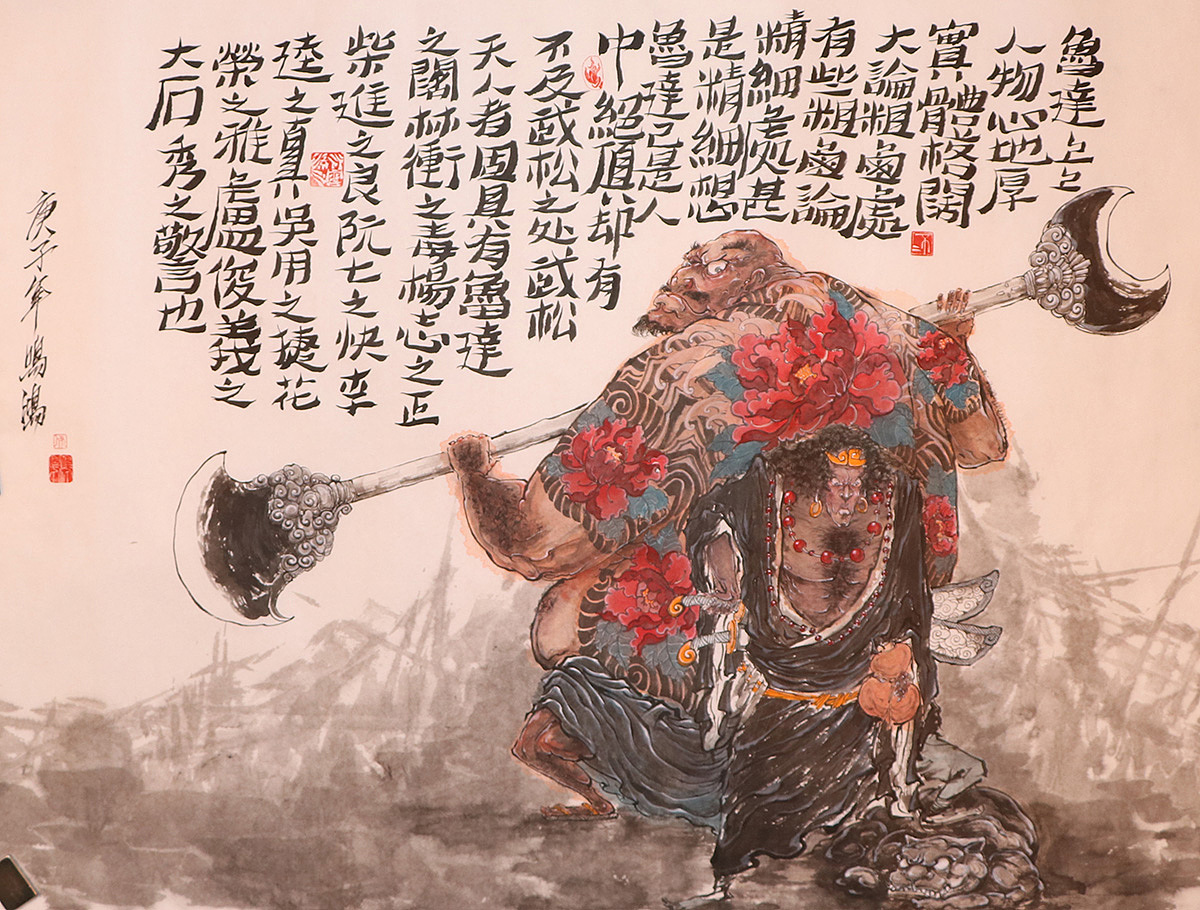 魯達上上
人物心地厚
實體格闊
大論粗鹵處
有些粗鹵論
精細處甚
是精細想
魯達已是人
中絕頂却有
不及武松之处武松
天人者固具有魯達
之闊林衝之毒楊志之正
柴進之良阮七之快李
逵之真吳用之捷花
榮之雅盧俊義之
大石秀之警也
庚子年